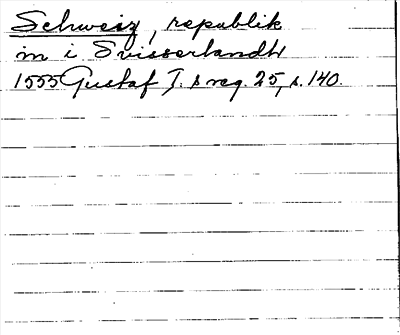 Schweiz, republik
m i Svisserlandh
1555 Gustaf I. s reg. 25, s. 140.